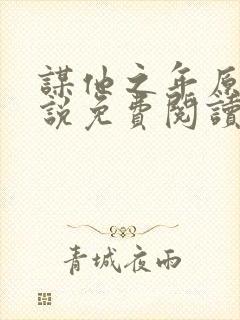 謀他之年原
說免費閱讀
青城夜雨